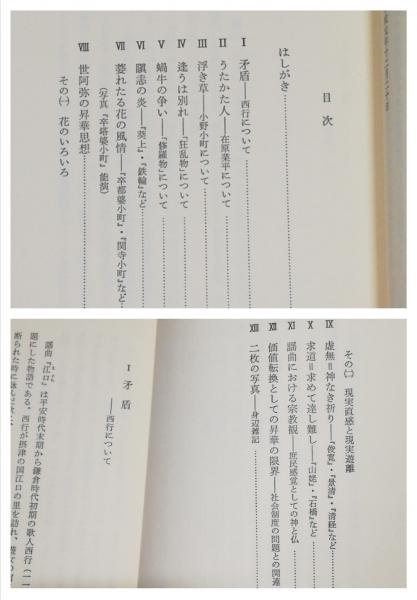 目次
はしがき
Ⅰ 矛盾──西行について
Ⅱ うたかた人──在原業平について
Ⅲ 浮き草──小野小町について
Ⅳ 逢うは別れ──「狂乱物」について
Ⅴ 蝸牛の争い──「修羅物」について
Ⅵ 瞋恚の炎──『葵上』・『鉄輪』など
Ⅶ 萎れたる花の風情──『卒都婆小町』・『関寺小町』など
(写真『卒塔婆小町』能演)
Ⅷ 世阿弥の昇華思想
その㈠ 花のいろいろ
その㈡ 現実直感と現実遊離
Ⅸ 虚無=神なき祈り──『俊寛』・『景清』・『清経』など
Ⅹ 求道=求めて達し難し──『山姥』・『石橋』など
Ⅺ 謡曲における宗教観──庶民感覚としての神と仏
Ⅻ 価値転換としての昇華の限界──社会制度の問題との関連
XIII 二枚の写真──身辺雑記
Ⅰ 矛盾
──西行について
謡曲『江口』は平安時代末期から鎌倉時代初期の歌人西行(一一
題にした物語である。西行が摂津の国江口の里を訪れ、
断られた時に詠んだ